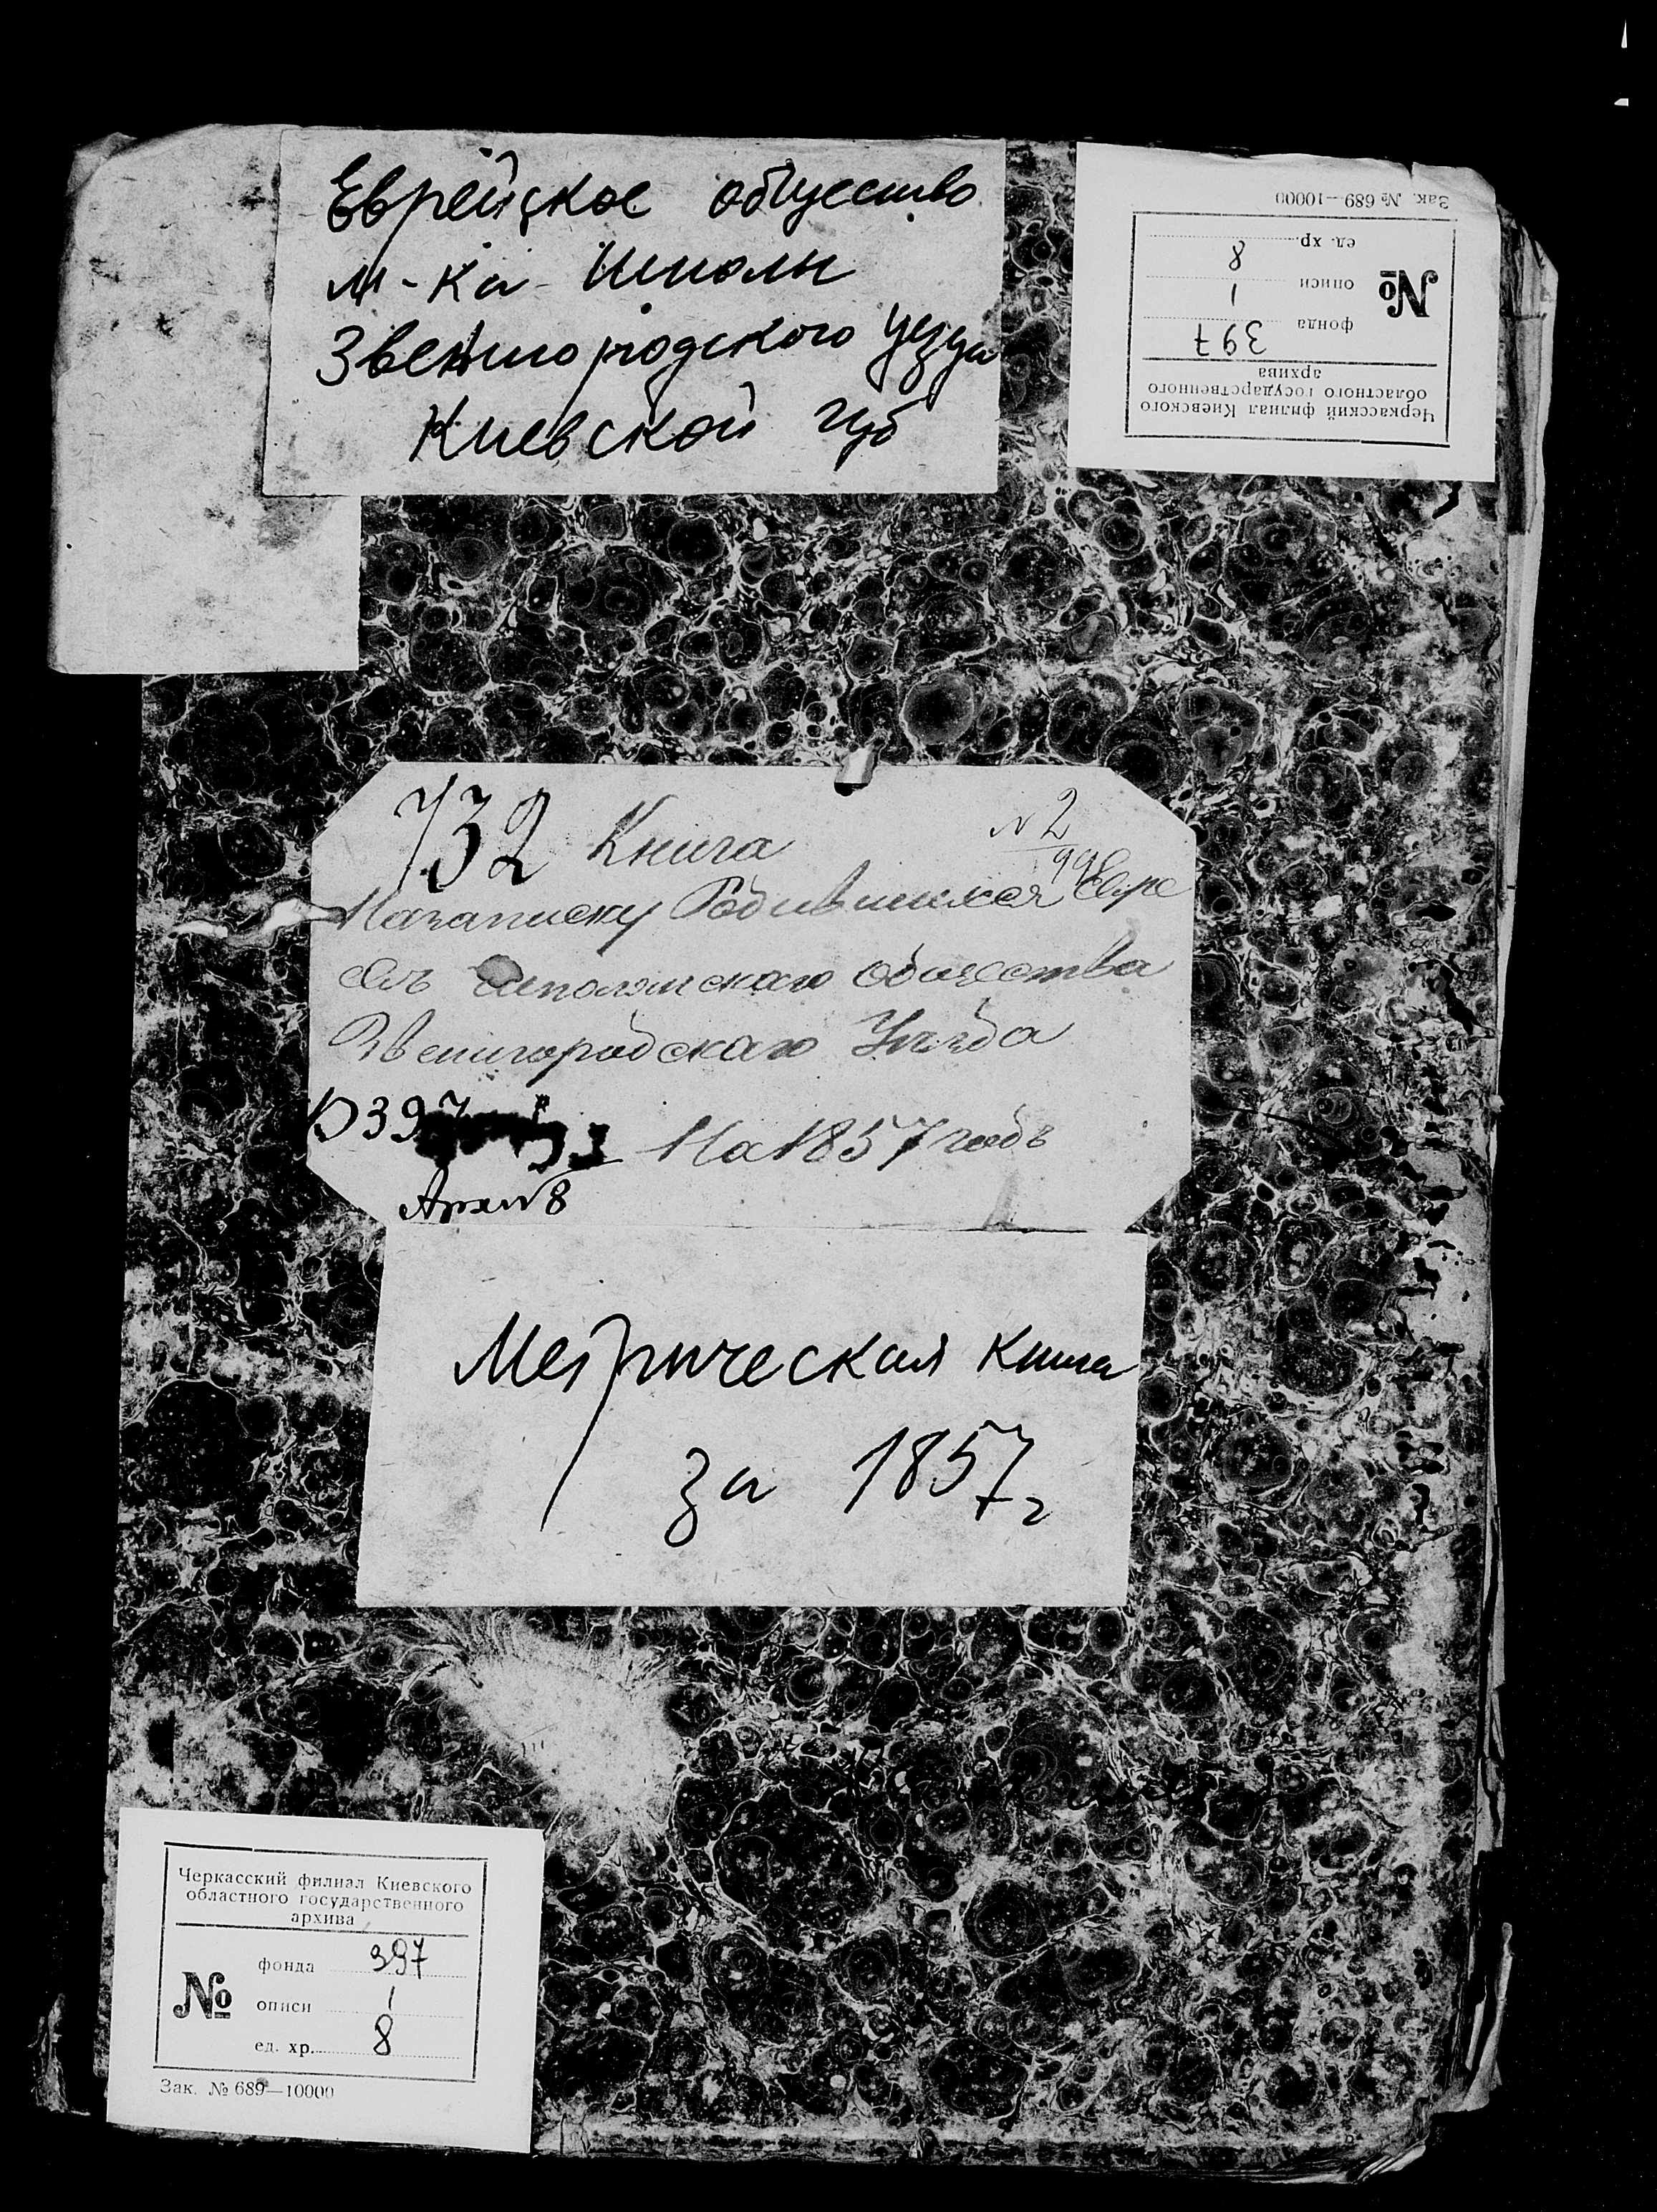 Еврейское общество
м-ка Шполы
Звенигородского уезда
Киевской губ
Зак. № 689—10000
Черкасский филиал Киевского
областного государственного
архива
№
фонда 397
описи 1
ед. хр. 8
732 Книга
№ 2
99
Назаписку Родившихся Евре
евъ Шполянскаго общества
Звенигородскаго Уѣзда
На 1857 годъ
Архив 8
Метрическая книга
за 1857 г
Черкасский филиал Киевского
областного государственного
архива
№
фонда 397
описи 1
ед. хр. 8
Зак. № 689—10000